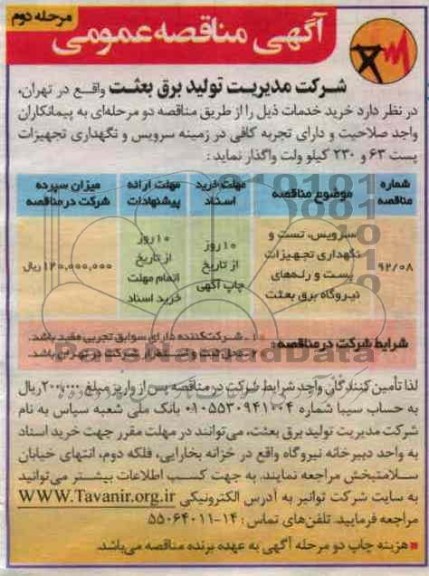 مرحله دوم
آگهی مناقصه عمومی
شرکت مدیریت تولید برق بعثت واقع در تهران،
در نظر دارد خرید خدمات ذیل را از طریق مناقصه دو مرحله‌ای به پیمانکاران
واجد صلاحیت و دارای تجربه کافی در زمینه سرویس و نگهداری تجهیزات
پست ۶۳ و ۲۳۰ کیلو ولت واگذار نماید :
شماره مناقصه
موضوع مناقصه
مهلت خرید اسناد
مهلت ارائه پیشنهادات
میزان سپرده شرکت در مناقصه
۹۲/۰۸
سرویس، تست و نگهداری تجهیزات پست و رله‌های نیروگاه برق بعثت
۱۰ روز از تاریخ چاپ آگهی
۱۰ روز از تاریخ اتمام مهلت خرید اسناد
۱۲۰,۰۰۰,۰۰۰ ریال
شرایط شرکت در مناقصه:
۱. شرکت‌کننده دارای سوابق تجربی مفید باشد.
محل ثبت و شرکت در تهران باشد.
ParsNamadData
لذا تأمین کنندگان واجد شرایط شرکت در مناقصه پس از واریز مبلغ ۲۰۰,۰۰۰ ریال
به حساب سیبا شماره ۰۱۰۵۵۳۰۹۴۱۰۰۴ بانک ملی شعبه سپاس به نام
شرکت مدیریت تولید برق بعثت، می‌توانند در مهلت مقرر جهت خرید اسناد
به واحد دبیرخانه نیروگاه واقع در خزانه بخارایی، فلکه دوم، انتهای خیابان
سلامتبخش مراجعه نمایند. به جهت کسب اطلاعات بیشتر می‌توانید
به سایت شرکت توانیر به آدرس الکترونیکی WWW.Tavanir.org.ir
مراجعه فرمایید. تلفن‌های تماس : ۱۴-۵۵۰۶۴۰۱۱
هزینه چاپ دو مرحله آگهی به عهده برنده مناقصه می‌باشد.